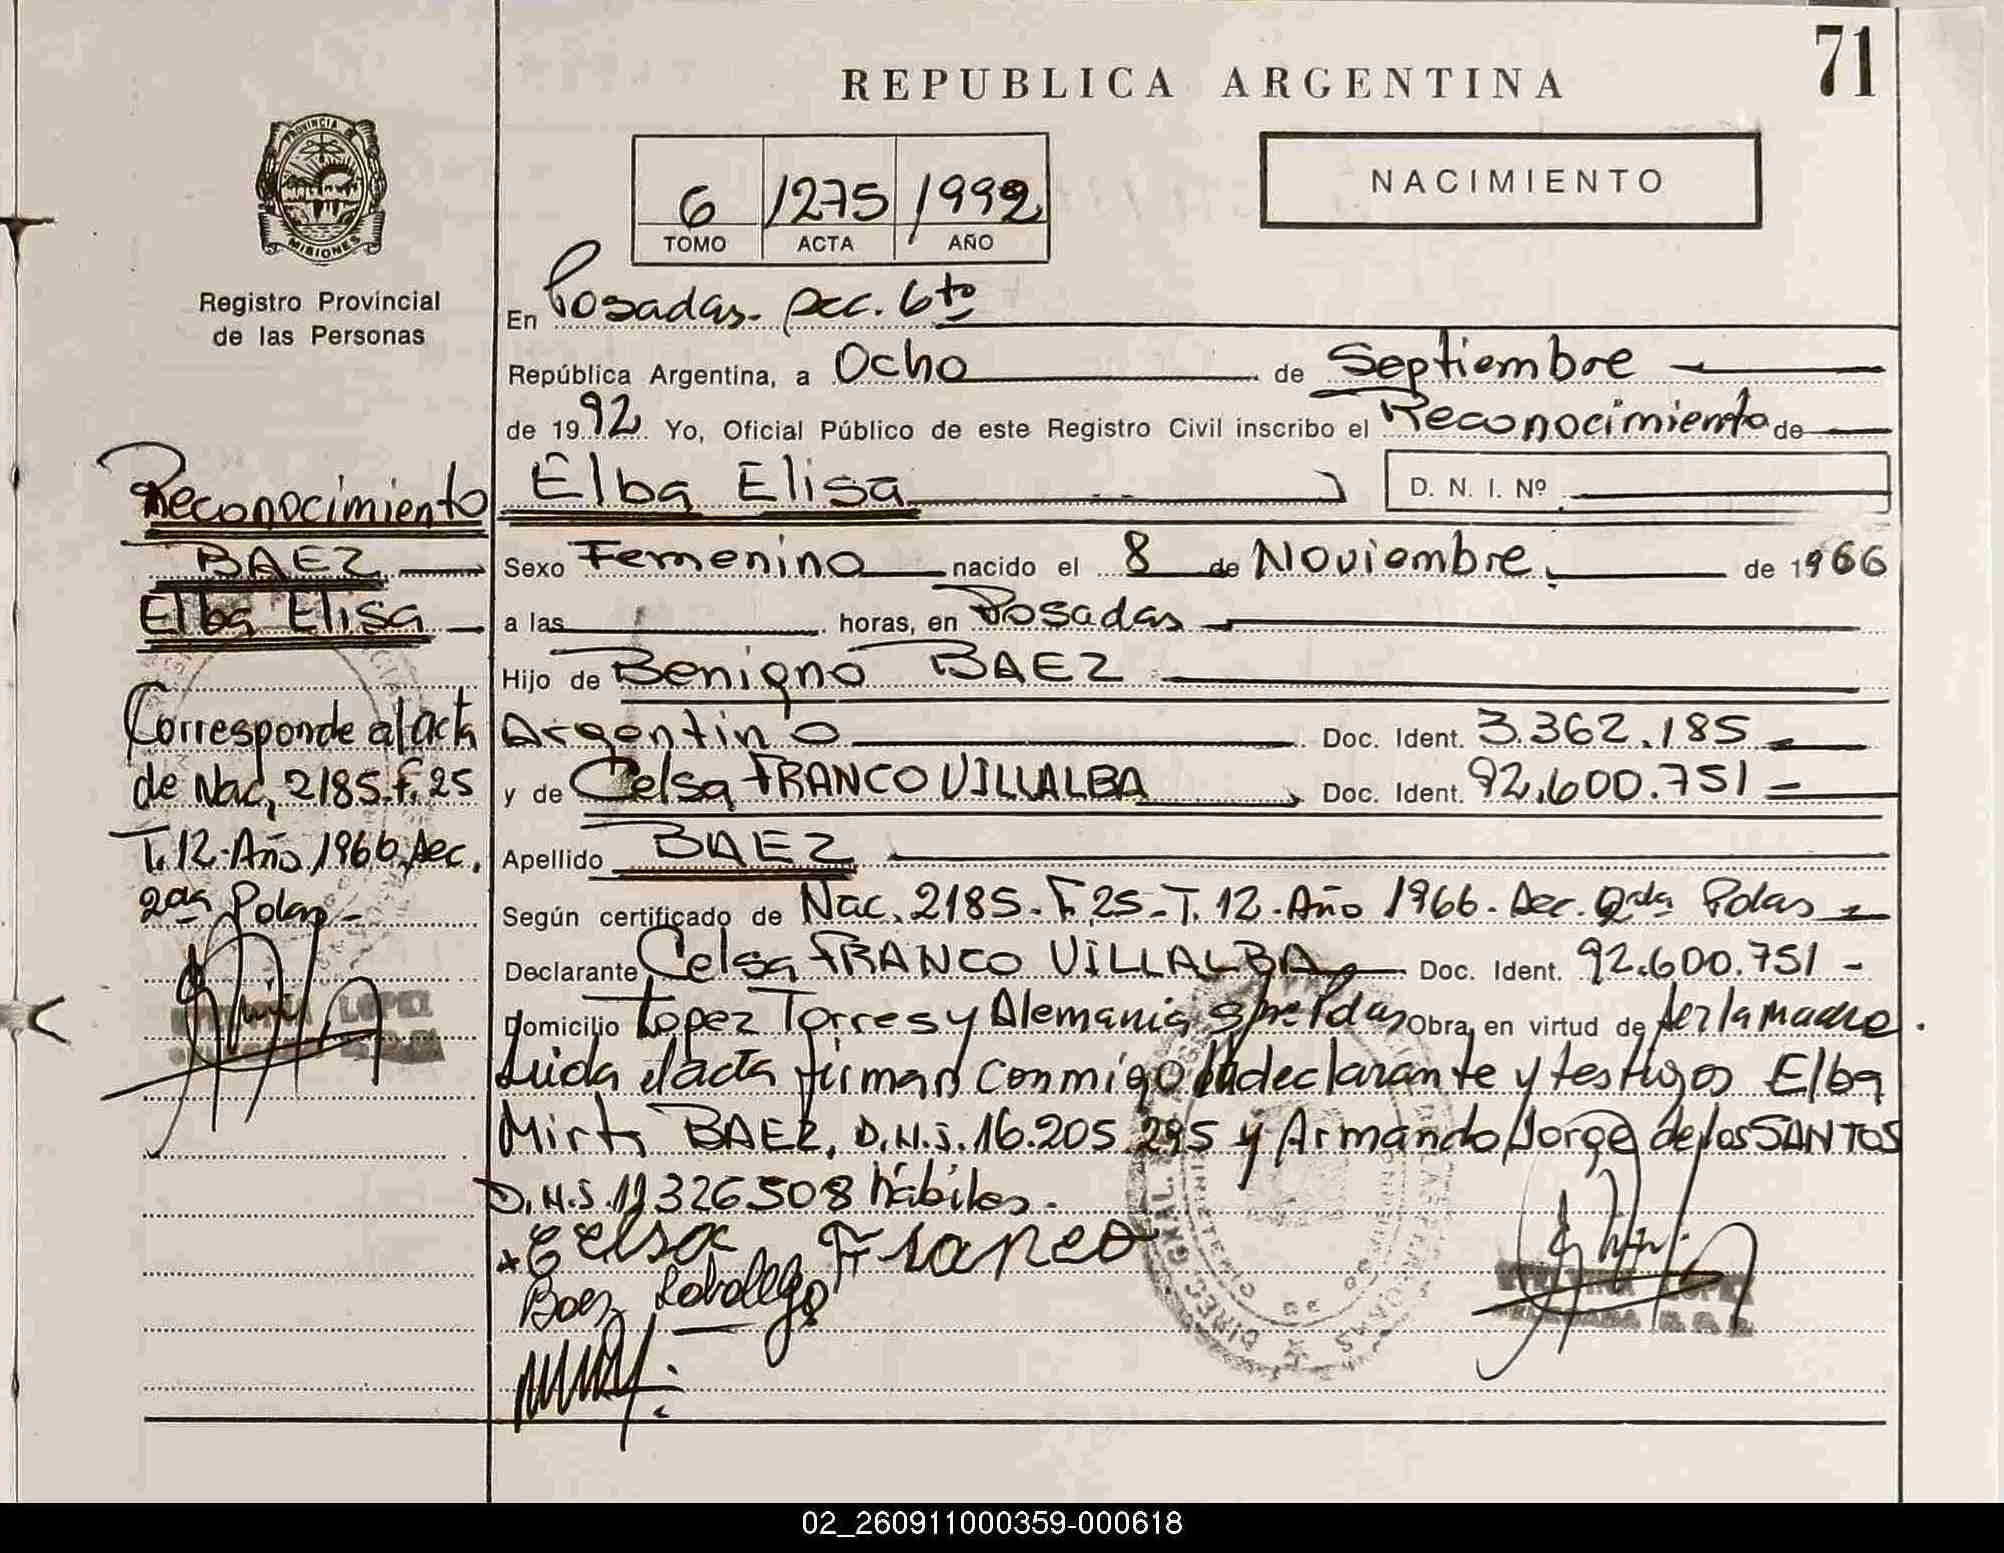 71
REPUBLICA ARGENTINA
NACIMIENTO
PROVINCIA DE
MISIONES
Registro Provincial
de las Personas
6 1275 1992
TOMO ACTA AÑO
En Posadas. Sec. 6to
República Argentina, a Ocho de Septiembre
de 1992 Yo, Oficial Público de este Registro Civil inscribo el Reconocimiento de
Elba Elisa D. N. I. Nº
Sexo Femenino nacido el 8 de Noviembre de 1966
a las horas, en Posadas
Hijo de Benigno BAEZ
Argentino Doc. Ident. 3.362.185
y de Celsa FRANCO VILLALBA Doc. Ident. 92.600.751
Apellido BAEZ
Según certificado de Nac. 2185. F. 25. T. 12. Año 1966. Sec. 2da Pdas
Declarante Celsa FRANCO VILLALBA Doc. Ident. 92.600.751
Domicilio Lopez Torres y Alemania Obra en virtud de ser la madre.
Leida el acta firman conmigo la declarante y testigos Elba
Mirta BAEZ, D.N.I. 16.205.295 y Armando Jorge de los SANTOS
D.N.I. 326508 hábiles.
Celsa Franco
Baez
Reconocimiento
BAEZ
Elba Elisa
Corresponde al acta
de Nac. 2185. F. 25
T. 12. Año 1966. Sec.
2da Pdas
LOPEZ
LOPEZ
02_260911000359-000618